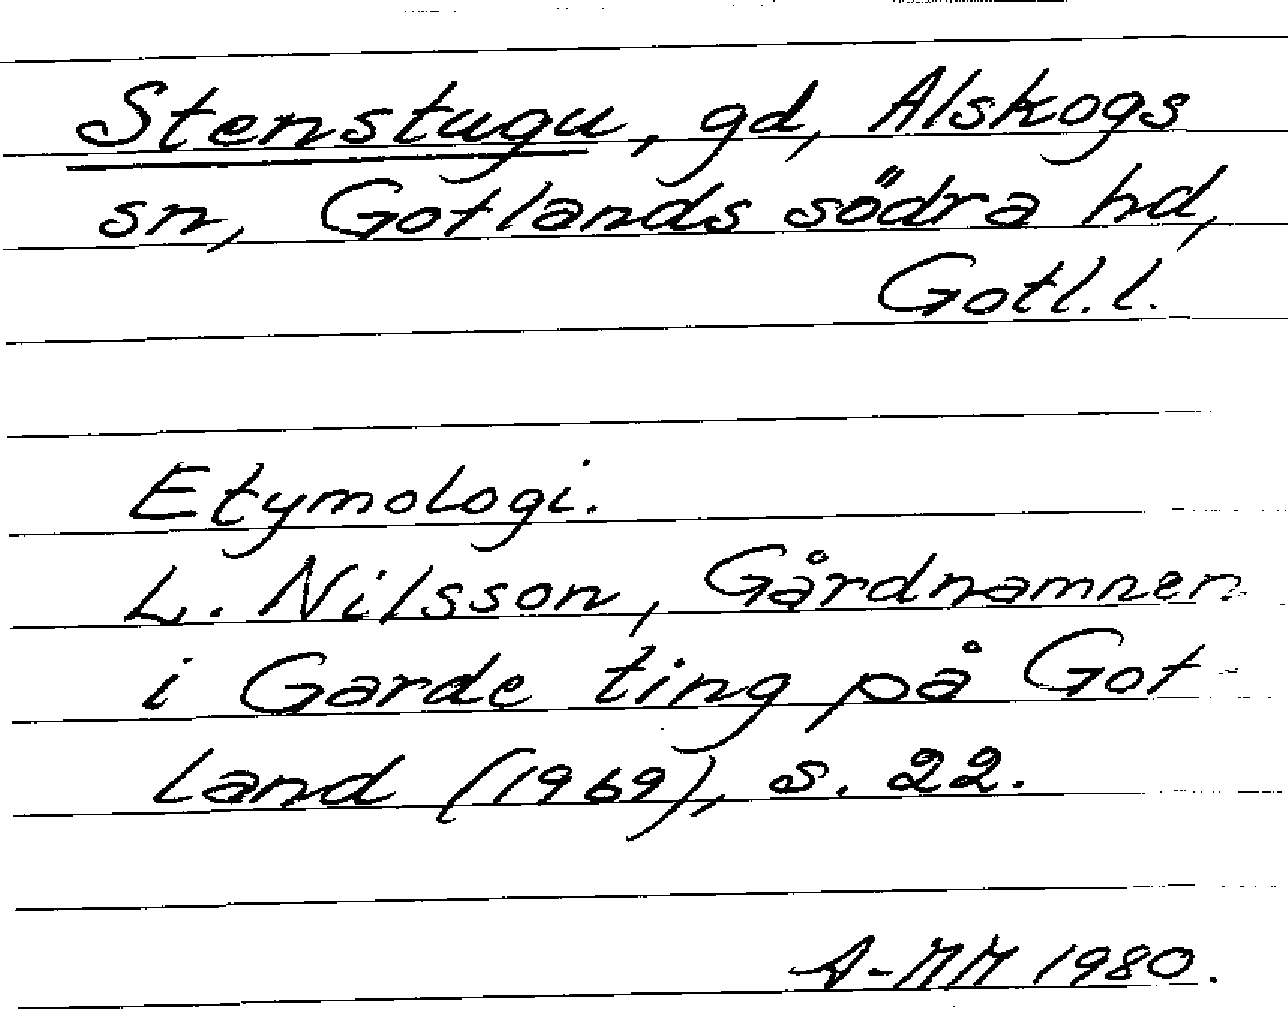 Stenstugu, gd, Alskogs
sn, Gotlands södra hd,
Gotl.l.
Etymologi.
L. Nilsson, Gårdnamnen
i Garde ting på Got-
land (1969), s. 22.
A-MM 1980.